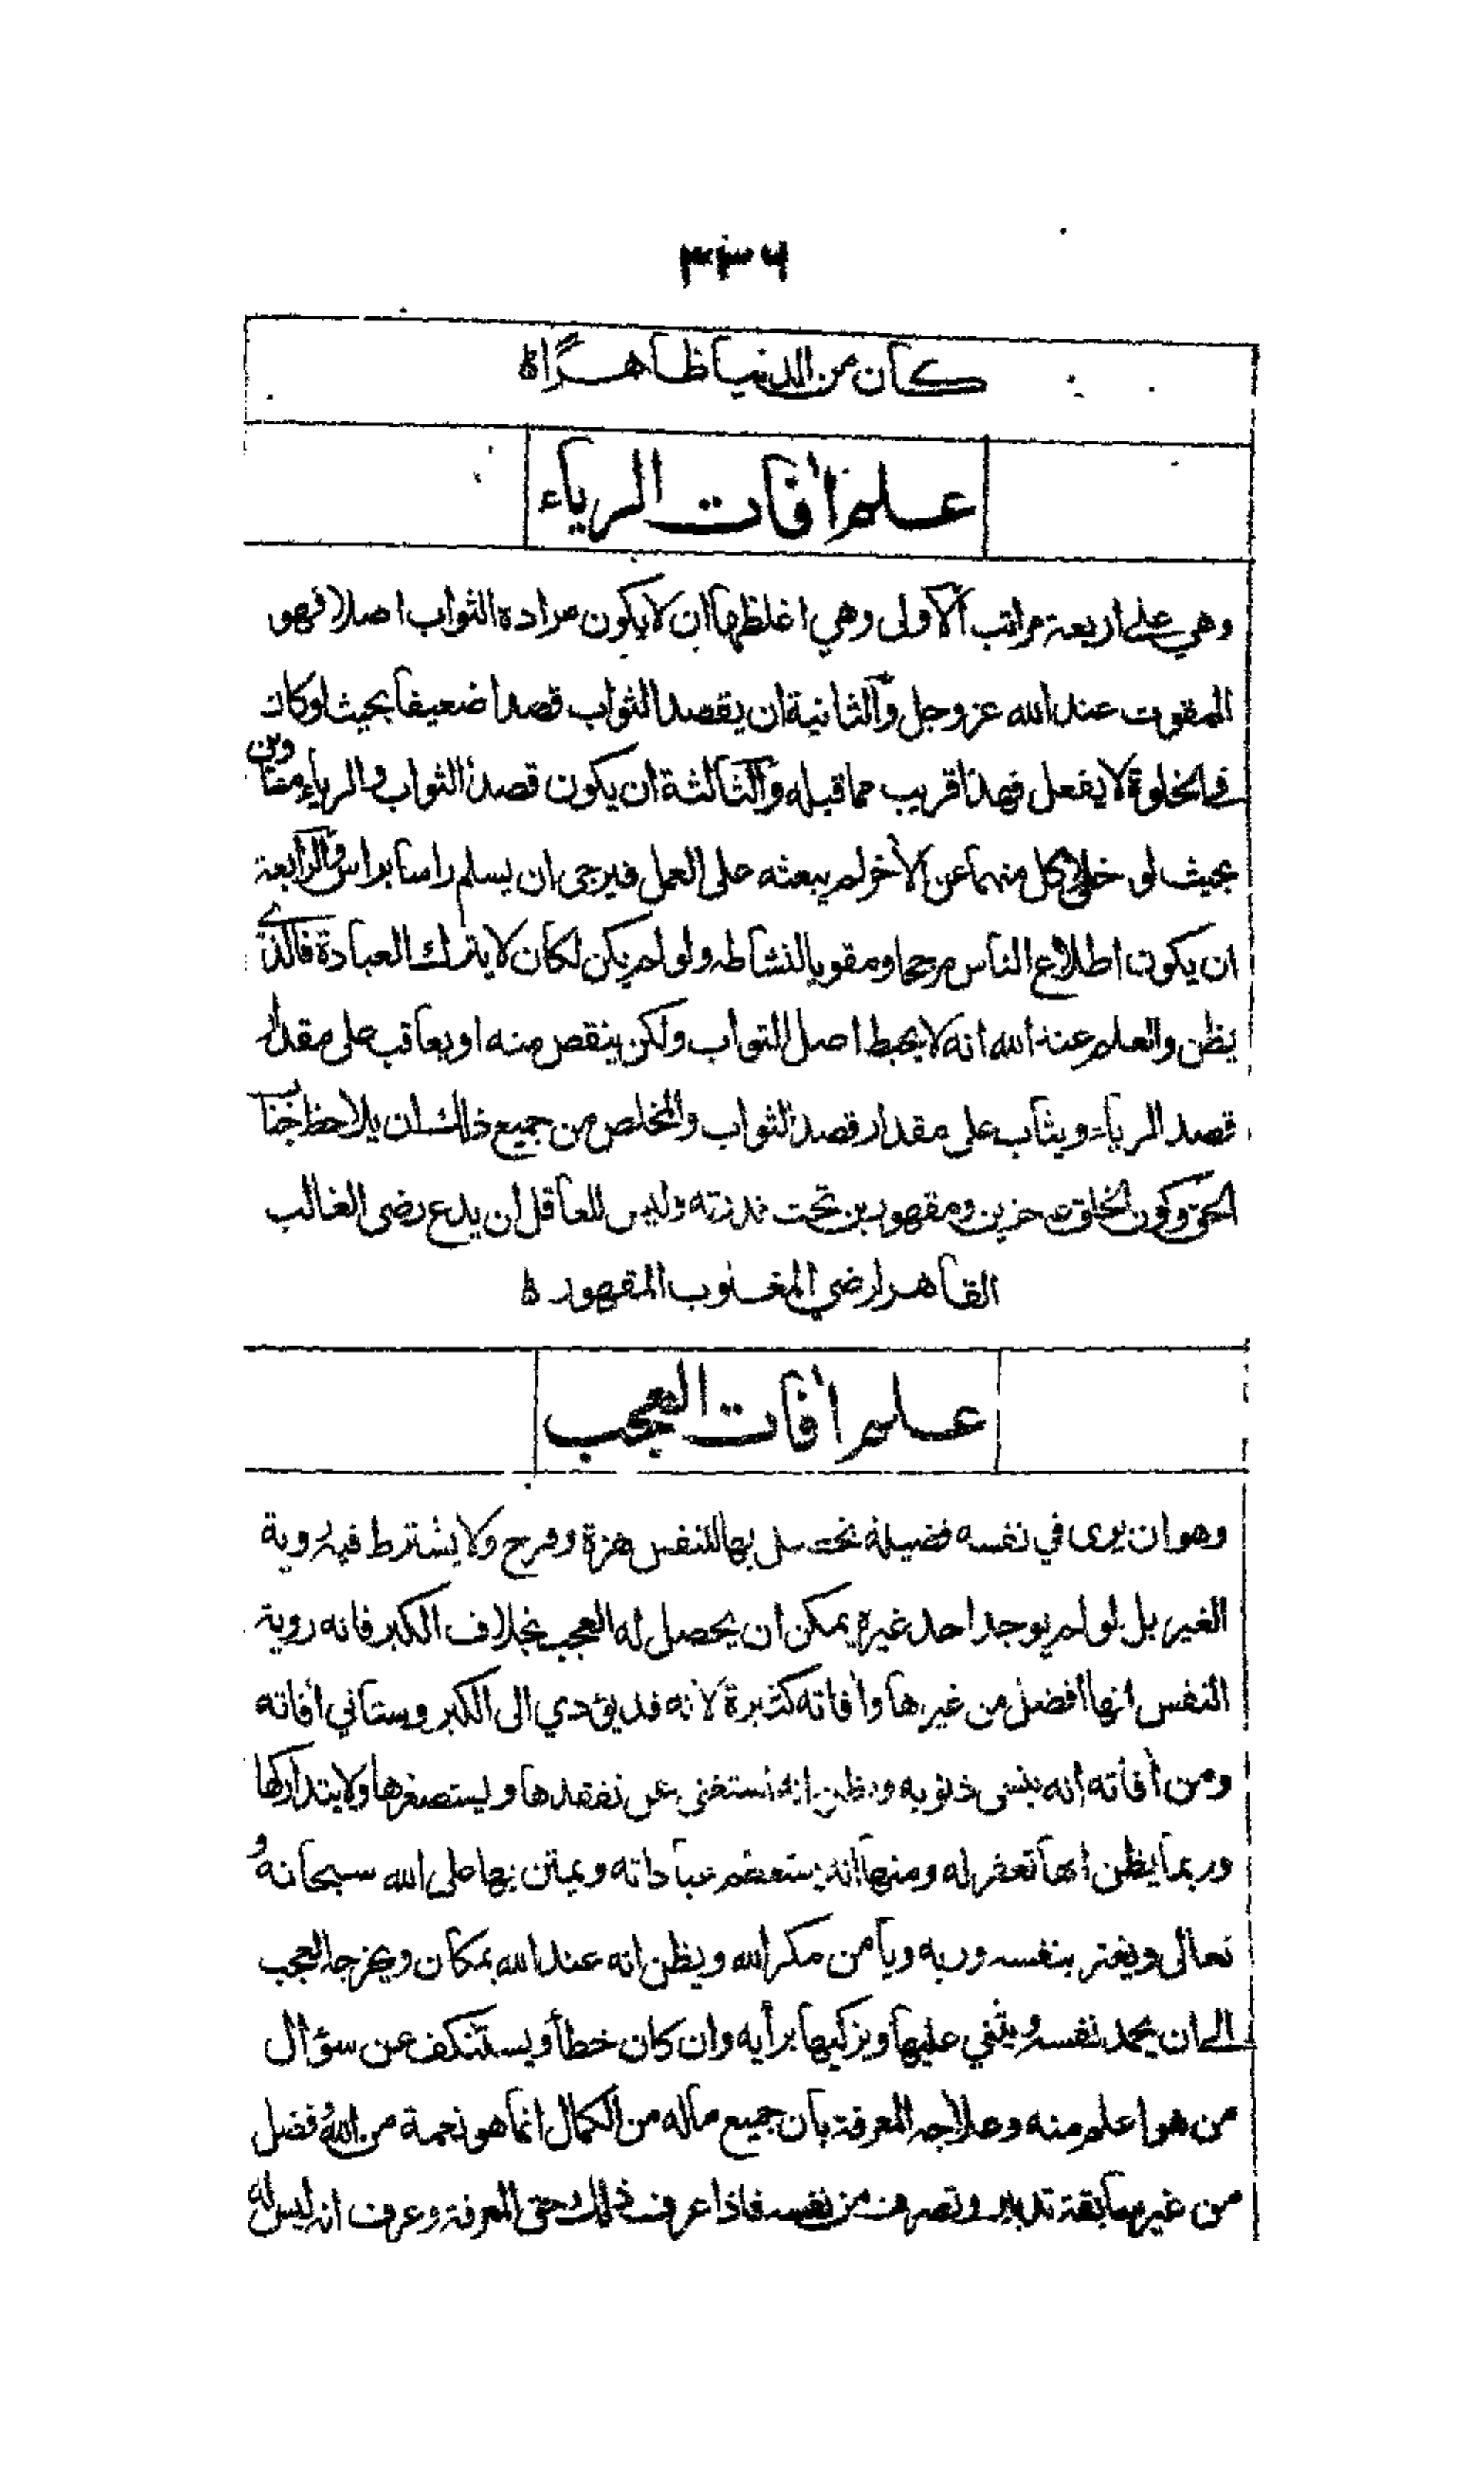 كان من الدنيا ظاهرًا ه
علم اٰفات الرياء
وهي على اربعة مراتب الاولى وهي اغلظها ان لا يكون مراده الثواب اصلا فهو
الممقوت عند الله عز وجل والثانية ان يقصد الثواب قصدا ضعيفا بحيث لو كان
في الخلوة لا يفعل فهذا قريب مما قبله والثالثة ان يكون قصد الثواب والرياء متساويين
بحيث لو خلا كل منهما عن الاخر لم يبعثه على العمل فيرجى ان يسلم راسا براس والرابعة
ان يكون اطلاع الناس مرجحا ومقويا لنشاطه ولو لم يكن لكان لا يترك العبادة فالذى
يظن والعلم عند الله انه لا يحبط اصل الثواب ولكن ينقص منه او يعاقب على مقدار
قصد الرياء ويثاب على مقدار قصد الثواب والمخلص من جميع ذالك ان يلاحظ جناب
الحق وكون الخلق عاجزين ومقهورين تحت قدرته وليس للعاقل ان يدع رضى الغالب
القاهر لرضي المغلوب المقهور ه
علم اٰفات العجب
وهو ان يرى في نفسه فضيلة تحصل بها للنفس هزة وفرح ولا يشترط فيه روية
الغير بل لو لم يوجد احد غيره يمكن ان يحصل له العجب بخلاف الكبر فانه روية
النفس انها افضل من غيرها واٰفاته كثيرة لانه قد يؤدي الى الكبر وستاتي اٰفاته
ومن اٰفاته انه ينسى ذنوبه ويظن انه استغنى عن تفقدها ويستصغرها ولا يتداركها
وربما يظن انها تغفر له ومنها انه يستعظم عباداته ويمتن بها على الله سبحانه و
تعالى ويغتر بنفسه وربه ويامن مكر الله ويظن انه عند الله بمكان ويخرجه العجب
الى ان يحمد نفسه ويثني عليها ويزكيها برأيه وان كان خطأ ويستنكف عن سؤال
من هو اعلم منه وعلاجه المعرفة بان جميع ماله من الكمال انما هو نعمة من الله وفضل
من غير سابقة تدبير وتصرف من نفسه فاذا عرف ذلك حق المعرفة وعرف انه ليس له